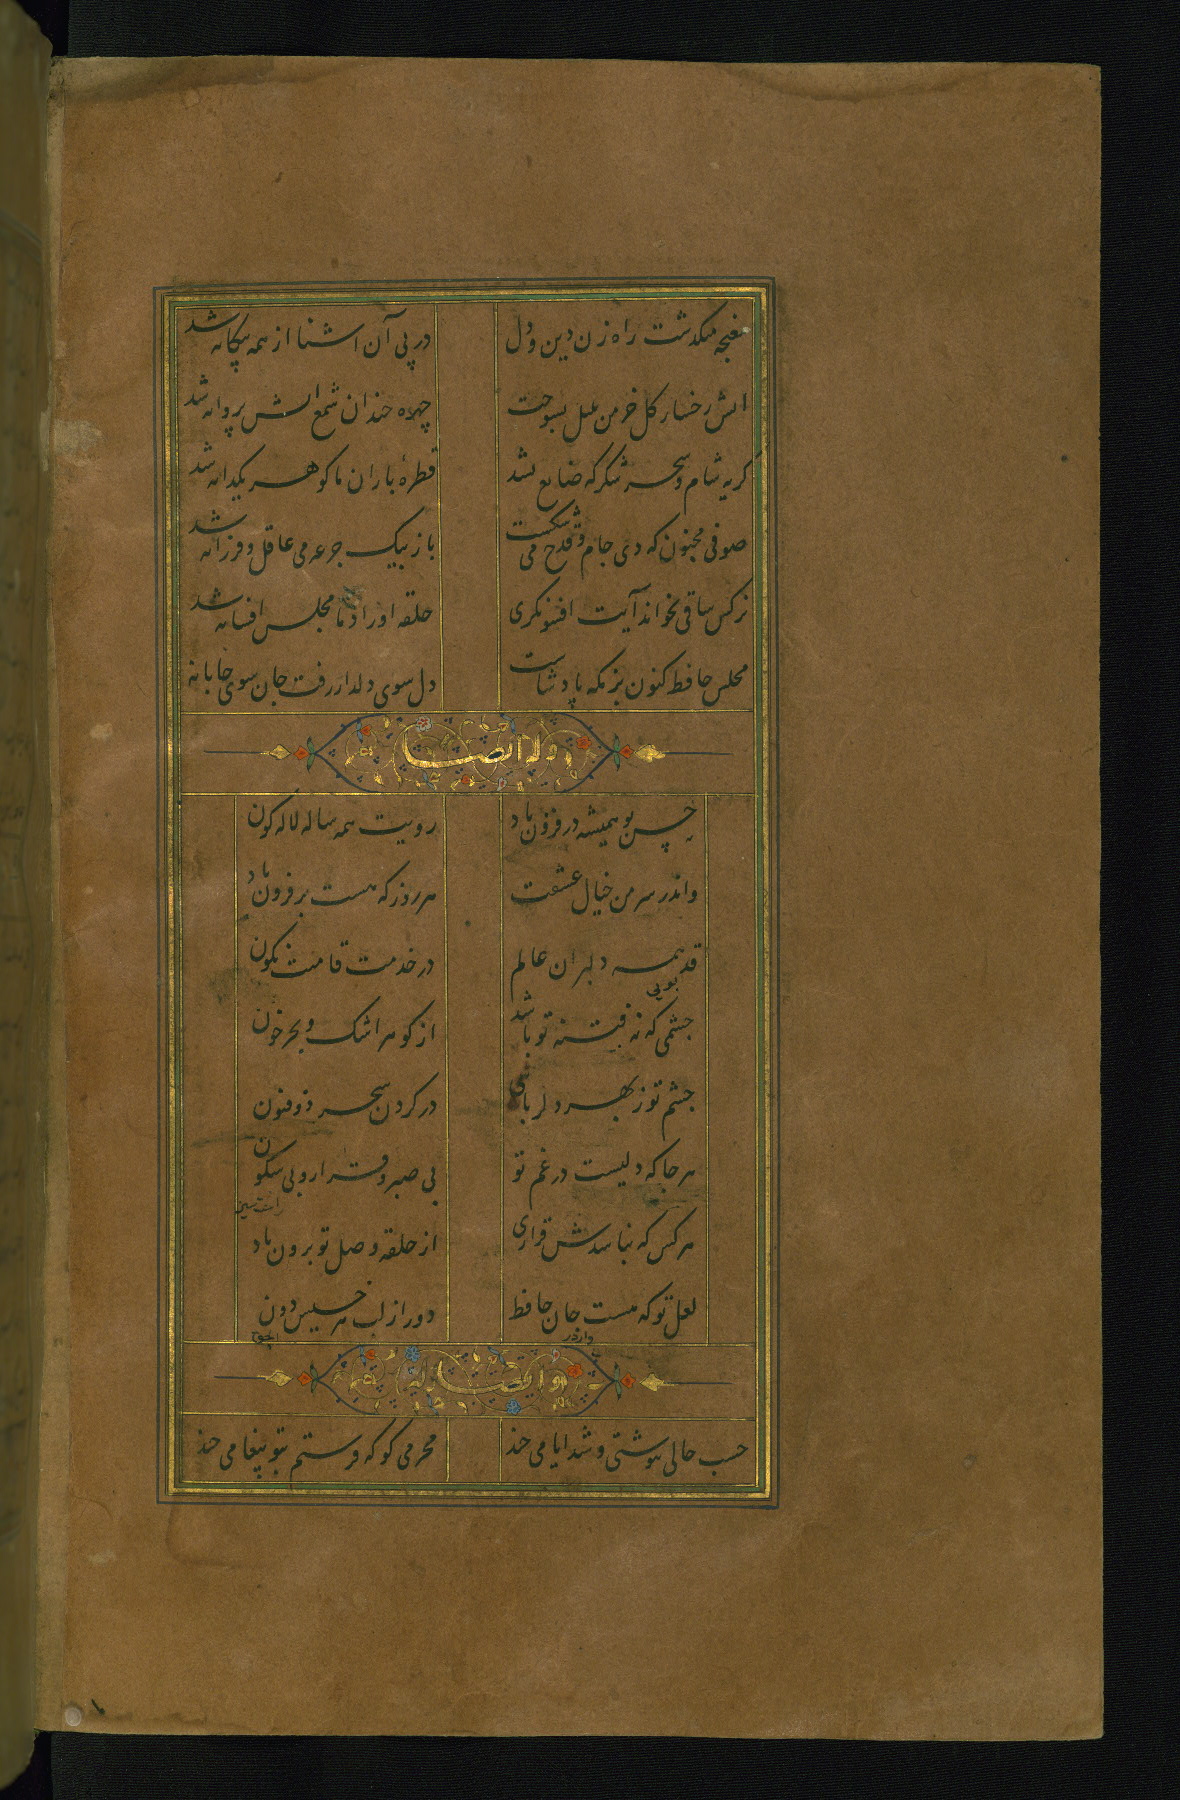 مغبچه میگذشت راه زن دین و دل در پی آن اشنا از همه بیگانه شد
اتش رخسار گل خرمن بلبل بسوخت چهره خندان شمع اتش پروانه شد
گریه شام و سحر شکر که ضایع نشد قطرهٔ باران ما گوهر یکدانه شد
صوفی مجنون که دی جام و قدح می شکست باز بیک جرعه می عاقل و فرزانه شد
نرکس ساقی بخواند آیت افسونکری حلقه اوراد ما مجلس افسانه شد
مجلس حافظ کنون بزمکه پادشاست دل سوی دلدار رفت جان سوی جانانه
وله ایضا
حسن تو همیشه در فزون باد رویت همه ساله لاله کون
واندر سر من خیال عشقت هر روز که هست بر فزون باد
قد همه دلبران عالم در خدمت قامتت نکون
چشمی که نه فتنه تو باشد از کوهر اشک و بحر خون
چشم تو ز بهر دلربایی در کردن سحر ذوفنون
هر جا که دلیست در غم تو بی صبر و قرار و بی سکون
هر کس که نباشدش قراری از حلقه وصل تو برون باد
لعل تو که هست جان حافظ دور از لب هر خسیس دون
وله ایضا
حسب حالی ننوشتی و شد ایامی چند محرمی کو که فرستم بتو پیغامی چند